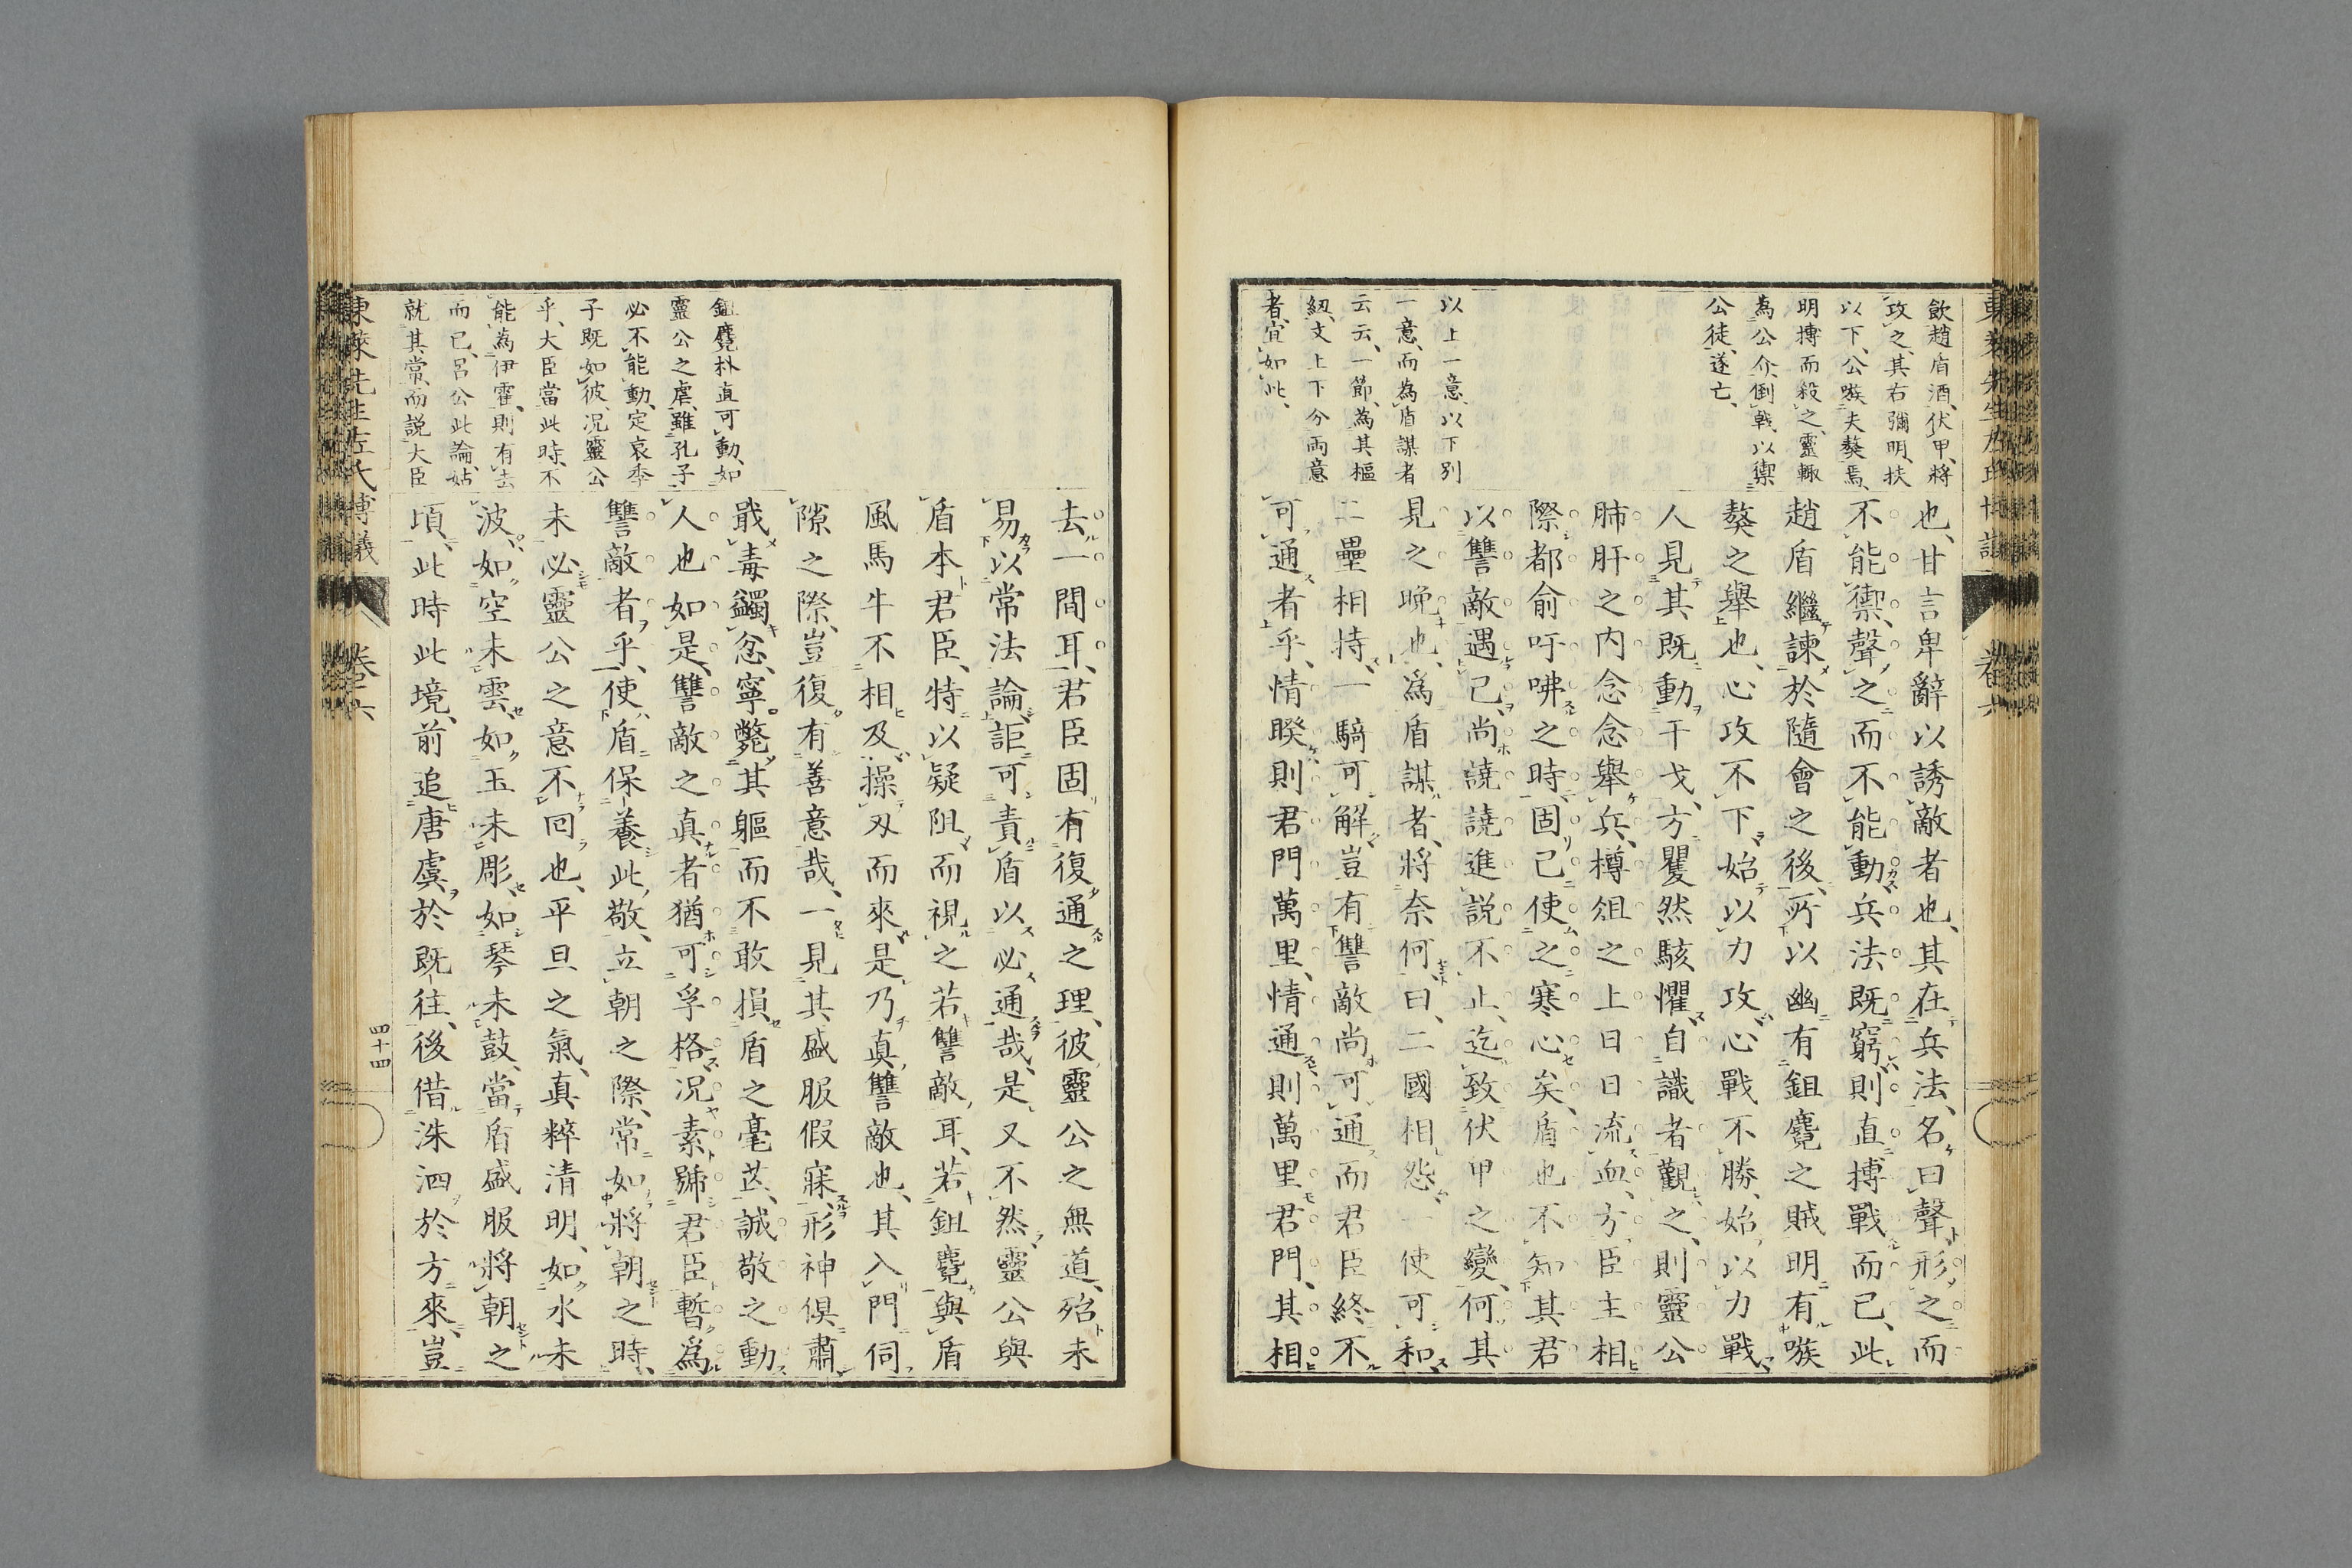 飲趙盾酒、伏甲、將
攻之、其右彌明、扶
以下、公嗾夫獒焉、
明搏而殺之、靈輙
為公介、倒戟以禦
公徒、遂亡、
以上一意、以下別
一意、而為盾謀者
云云、一節、為其樞
紐、文上下分両意
者、宜如此、
也、甘言卑辭以誘敵者也、其在兵法、名曰聲形之而
不能禦、聲之而不能動、兵法既窮、則直搏戰而已、此
趙盾繼諫於隨會之後、所以幽有鉏麑之賊、明有嗾
獒之舉也、心攻不下、始以力攻、心戰不勝、始以力戰、
人見其既動干戈、方矍然駭懼、自識者觀之、則靈公
肺肝之内、念念舉兵、樽俎之上、日日流血、方臣主相
際、都俞吁咈之時、固已使之寒心矣、盾也不知其君
以讐敵遇己、尚譊譊進説不止、迄致伏甲之變、何其
見之晚也、為盾謀者、將奈何、曰、二國相怨、一使可和、
二壘相持、一騎可解、豈有讐敵尚可通、而君臣終不
可通者乎、情睽則君門萬里、情通則萬里君門、其相
去一間耳、君臣固有復通之理、彼靈公之無道、殆未
易以常法論、詎可責盾以必通哉、是又不然、靈公與
盾本君臣、特以疑阻而視之若讐敵耳、若鉏麑與盾
風馬牛不相及、操刄而來、是乃真讐敵也、其入門伺
隙之際、豈復有善意哉、一見其盛服假寐、形神倶肅、
戢毒蠲忿、寧斃其軀而不敢損盾之毫芒、誠敬之動
人也如是、讐敵之真者猶可孚格、況素號君臣、暫為
讐敵者乎、使盾保養此敬、立朝之際、常如將朝之時、
未必靈公之意不回也、平旦之氣、真粹清明、如水未
波、如空未雲、如玉未彫、如琴未鼓、當盾盛服將朝之
頃、此時此境、前追唐虞於既往、後借洙泗於方來、豈
鉏麑朴直可動、如
靈公之虐、雖孔子
必不能動、定哀季
子既如彼、況靈公
乎、大臣當此時、不
能為伊霍、則有去
而已、呂公此論、姑
就其常、而説大臣
東萊先生左氏博議
卷六
四十四